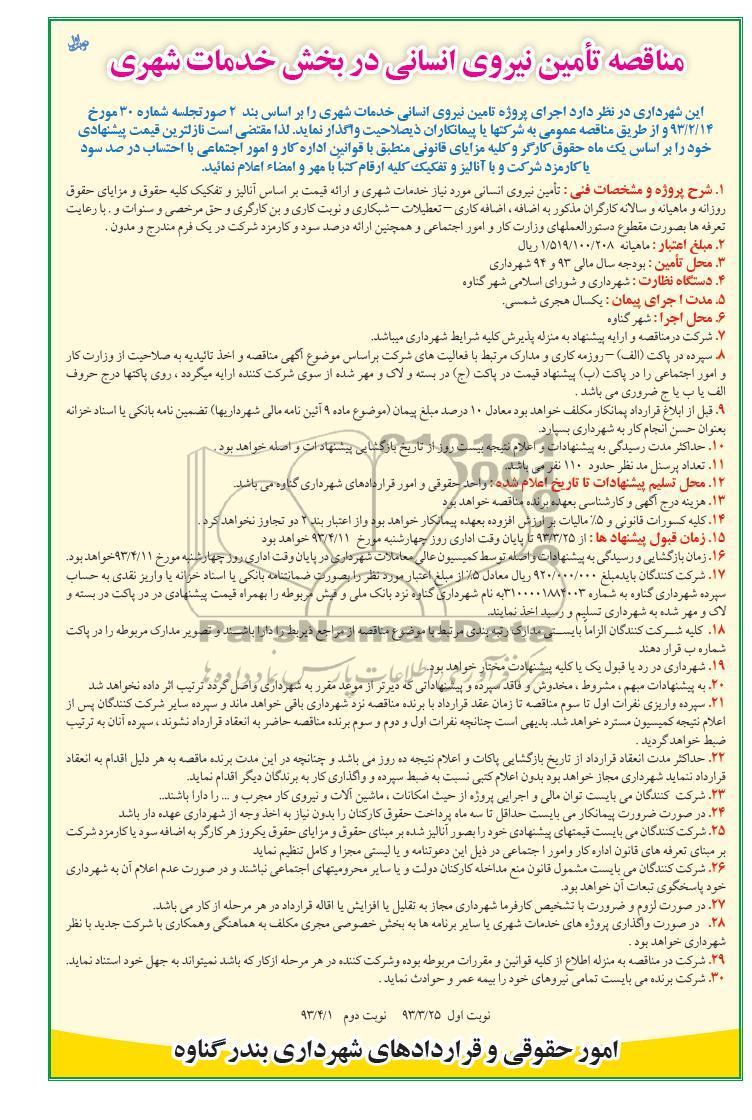 نوبت اول
مناقصه تأمین نیروی انسانی در بخش خدمات شهری
این شهرداری در نظر دارد اجرای پروژه تامین نیروی انسانی خدمات شهری را بر اساس بند ۲ صورتجلسه شماره ۳۰ مورخ
۹۳/۲/۱۴ و از طریق مناقصه عمومی به شرکتها یا پیمانکاران ذیصلاحیت واگذار نماید. لذا مقتضی است نازلترین قیمت پیشنهادی
خود را بر اساس یک ماه حقوق کارگر و کلیه مزایای قانونی منطبق با قوانین اداره کار و امور اجتماعی با احتساب در صد سود
یا کارمزد شرکت و با آنالیز و تفکیک کلیه ارقام کتباً با مهر و امضاء اعلام نمائید.
۱. شرح پروژه و مشخصات فنی : تأمین نیروی انسانی مورد نیاز خدمات شهری و ارائه قیمت بر اساس آنالیز و تفکیک کلیه حقوق و مزایای حقوق
روزانه و ماهیانه و سالانه کارگران مذکور به اضافه ، اضافه کاری – تعطیلات – شبکاری و نوبت کاری و بن کارگری و حق مرخصی و سنوات و . با رعایت
تعرفه ها بصورت مقطوع دستورالعملهای وزارت کار و امور اجتماعی و همچنین ارائه درصد سود و کارمزد شرکت در یک فرم مندرج و مدون .
۲. مبلغ اعتبار : ماهیانه ۱/۵۱۹/۱۰۰/۲۰۸ ریال
۳. محل تأمین : بودجه سال مالی ۹۳ و ۹۴ شهرداری
۴. دستگاه نظارت : شهرداری و شورای اسلامی شهر گناوه
۵. مدت ا جرای پیمان : یکسال هجری شمسی.
۶. محل اجرا : شهر گناوه
۷. شرکت درمناقصه و ارایه پیشنهاد به منزله پذیرش کلیه شرایط شهرداری میباشد.
۸. سپرده در پاکت (الف) – روزمه کاری و مدارک مرتبط با فعالیت های شرکت براساس موضوع آگهی مناقصه و اخذ تائیدیه به صلاحیت از وزارت کار
و امور اجتماعی را در پاکت (ب) پیشنهاد قیمت در پاکت (ج) در بسته و لاک و مهر شده از سوی شرکت کننده ارایه میگردد ، روی پاکتها درج حروف
الف یا ب یا ج ضروری می باشد .
۹. قبل از ابلاغ قرارداد پمانکار مکلف خواهد بود معادل ۱۰ درصد مبلغ پیمان (موضوع ماده ۹ آئین نامه مالی شهرداریها) تضمین نامه بانکی یا اسناد خزانه
بعنوان حسن انجام کار به شهرداری بسپارد.
۱۰. حداکثر مدت رسیدگی به پیشنهادات و اعلام نتیجه بیست روز از تاریخ بازگشایی پیشنهاد ات و اصله خواهد بود .
۱۱. تعداد پرسنل مد نظر حدود ۱۱۰ نفر می باشد.
۱۲. محل تسلیم پیشنهادات تا تاریخ اعلام شده : واحد حقوقی و امور قراردادهای شهرداری گناوه می باشد.
۱۳. هزینه درج آگهی و کارشناسی بعهده برنده مناقصه خواهد بود
۱۴. کلیه کسورات قانونی و ۵٪ مالیات بر ارزش افزوده بعهده پیمانکار خواهد بود واز اعتبار بند ۲ دو تجاوز نخواهد کرد .
۱۵. زمان قبول پیشنهاد ها : از ۹۳/۳/۲۵ تا پایان وقت اداری روز چهارشنبه مورخ ۹۳/۴/۱۱ خواهد بود
۱۶. زمان بازگشایی و رسیدگی به پیشنهادات واصله توسط کمیسیون عالی معاملات شهرداری در پایان وقت اداری روز چهارشنبه مورخ ۹۳/۴/۱۱خواهد بود.
۱۷. شرکت کنندگان بایدمبلغ ۹۲۰/۰۰۰/۰۰۰ ریال معادل ۵٪ از مبلغ اعتبار مورد نظر را بصورت ضمانتنامه بانکی یا اسناد خزانه یا واریز نقدی به حساب
سپرده شهرداری گناوه به شماره ۳۱۰۰۰۰۱۸۸۴۰۰۳به نام شهرداری گناوه نزد بانک ملی و فیش مربوطه را بهمراه قیمت پیشنهادی در در پاکت در بسته و
لاک و مهر شده به شهرداری تسلیم و رسید اخذ نمایند.
۱۸. کلیه شرکت کنندگان الزاماً بایستی مدارک رتبه بندی مرتبط با موضوع مناقصه از مراجع ذیربط را دارا باشند و تصویر مدارک مربوطه را در پاکت
شماره ب قرار دهند
۱۹. شهرداری در رد یا قبول یک یا کلیه پیشنهادت مختار خواهد بود.
۲۰. به پیشنهادات مبهم ، مشروط ، مخدوش و فاقد سپرده و پیشنهاداتی که دیرتر از موعد مقرر به شهرداری واصل گردد ترتیب اثر داده نخواهد شد
۲۱. سپرده واریزی نفرات اول تا سوم مناقصه تا زمان عقد قرارداد با برنده مناقصه نزد شهرداری باقی خواهد ماند و سپرده سایر شرکت کنندگان پس از
اعلام نتیجه کمیسیون مسترد خواهد شد. بدیهی است چنانچه نفرات اول و دوم و سوم برنده مناقصه حاضر به انعقاد قرارداد نشوند ، سپرده آنان به ترتیب
ضبط خواهد گردید .
۲۲. حداکثر مدت انعقاد قرارداد از تاریخ بازگشایی پاکات و اعلام نتیجه ده روز می باشد و چنانچه در این مدت برنده ماقصه به هر دلیل اقدام به انعقاد
قرارداد ننماید شهرداری مجاز خواهد بود بدون اعلام کتبی نسبت به ضبط سپرده و واگذاری کار به برندگان دیگر اقدام نماید.
۲۳. شرکت کنندگان می بایست توان مالی و اجرایی پروژه از حیث امکانات ، ماشین آلات و نیروی کار مجرب و ... را دارا باشند..
۲۴. در صورت ضرورت پیمانکار می بایست حداقل تا سه ماه پرداخت حقوق کارکنان را بدون نیاز به اخذ وجه از شهرداری عهده دار باشد
۲۵. شرکت کنندگان می بایست قیمتهای پیشنهادی خود را بصور آنالیز شده بر مبنای حقوق و مزایای حقوق یکروز هر کارگر به اضافه سود یا کارمزد شرکت
بر مبنای تعرفه های قانون اداره کار وامور ا جتماعی در ذیل این دعوتنامه و یا لیستی مجزا و کامل تنظیم نماید
۲۶. شرکت کنندگان می بایست مشمول قانون منع مداخله کارکنان دولت و یا سایر محرومیتهای اجتماعی نباشند و در صورت عدم اعلام آن به شهرداری
خود پاسخگوی تبعات آن خواهد بود.
۲۷. در صورت لزوم و ضرورت با تشخیص کارفرما شهرداری مجاز به تقلیل یا افزایش یا اقاله قرارداد در هر مرحله از کار می باشد.
۲۸. در صورت واگذاری پروژه های خدمات شهری یا سایر برنامه ها به بخش خصوصی مجری مکلف به هماهنگی وهمکاری با شرکت جدید با نظر
شهرداری خواهد بود .
۲۹. شرکت در مناقصه به منزله اطلاع از کلیه قوانین و مقررات مربوطه بوده وشرکت کننده در هر مرحله ازکار که باشد نمیتواند به جهل خود استناد نماید.
۳۰. شرکت برنده می بایست تمامی نیروهای خود را بیمه عمر و حوادث نماید .
نوبت اول ۹۳/۳/۲۵ نوبت دوم ۹۳/۴/۱
امور حقوقی و قراردادهای شهرداری بندر گناوه
ParsNamadData
مرکز فرآوری اطلاعات پارس نماد داده ها